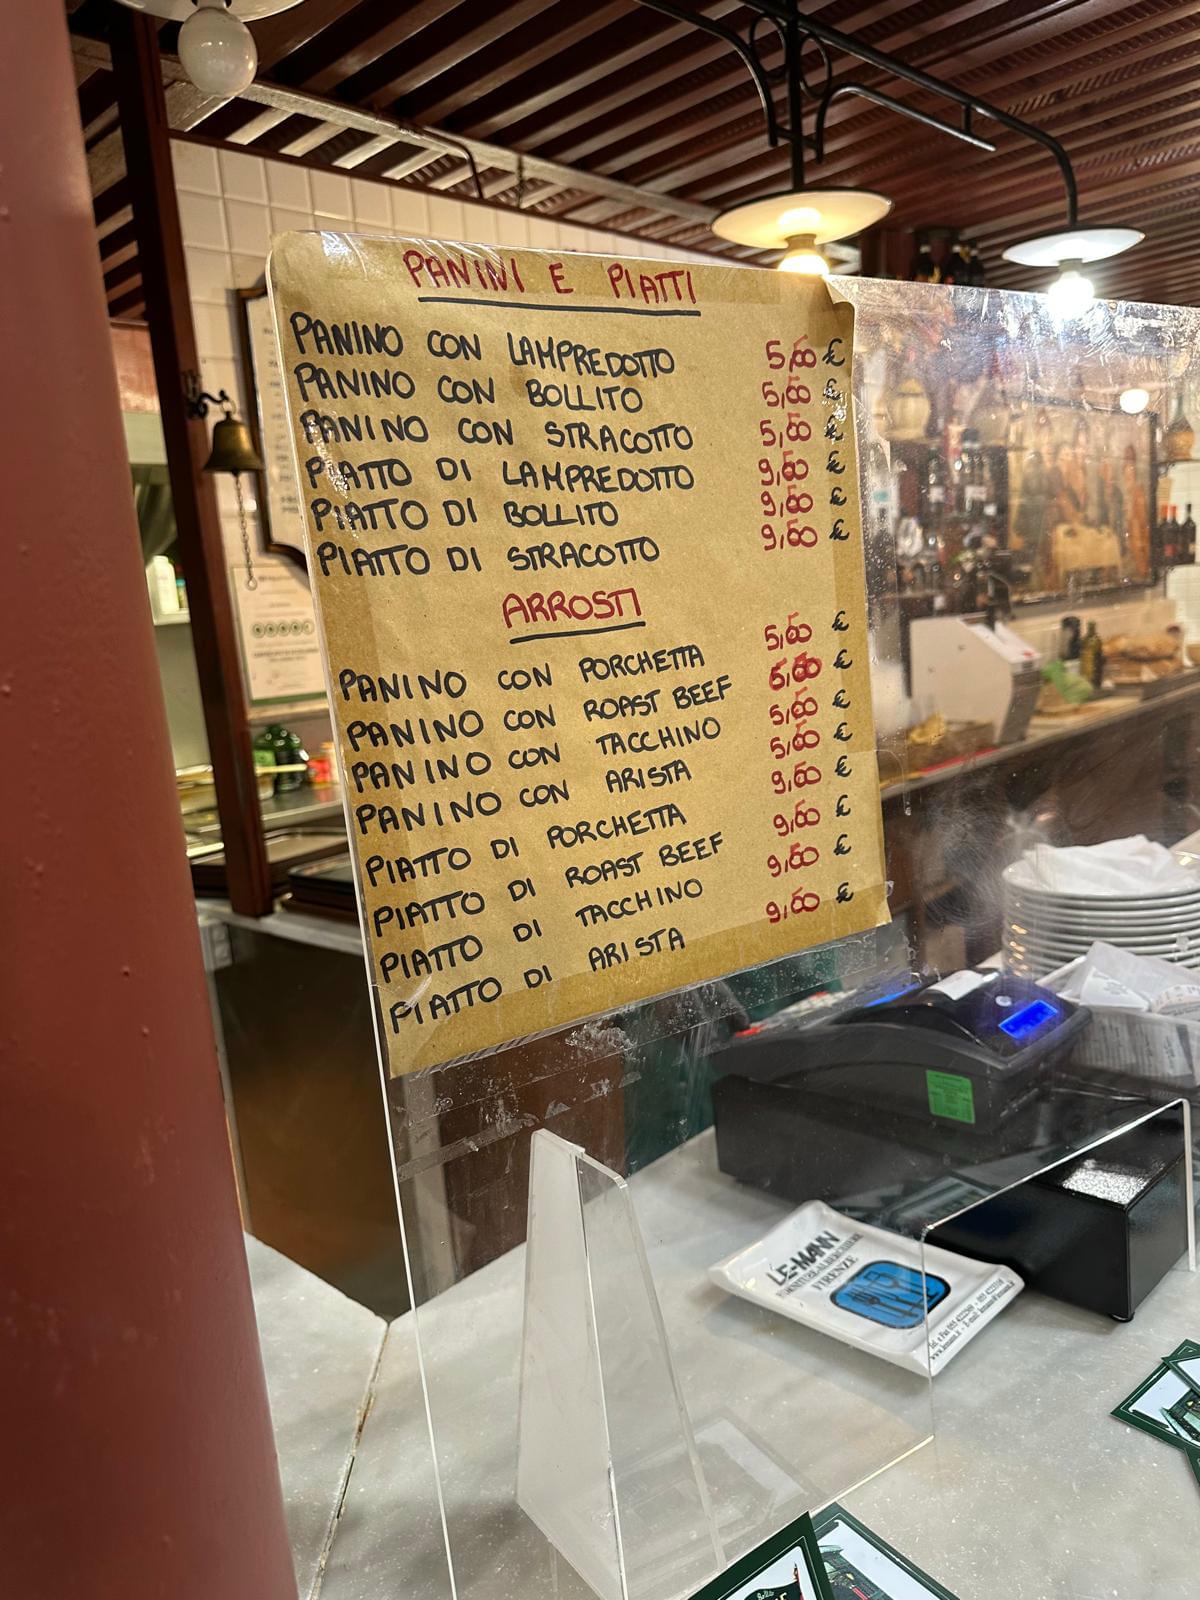 PANINI E PIATTI
PANINO CON LAMPREDOTTO 5,50 €
PANINO CON BOLLITO 5,50 €
PANINO CON STRACOTTO 5,50 €
PIATTO DI LAMPREDOTTO 9,50 €
PIATTO DI BOLLITO 9,50 €
PIATTO DI STRACOTTO 9,50 €
ARROSTI
PANINO CON PORCHETTA 5,50 €
PANINO CON ROAST BEEF 5,50 €
PANINO CON TACCHINO 5,50 €
PANINO CON ARISTA 5,50 €
PIATTO DI PORCHETTA 9,50 €
PIATTO DI ROAST BEEF 9,50 €
PIATTO DI TACCHINO 9,50 €
PIATTO DI ARISTA 9,50 €
LE-MANN
FORNITURE ALBERGHIERE
FIRENZE